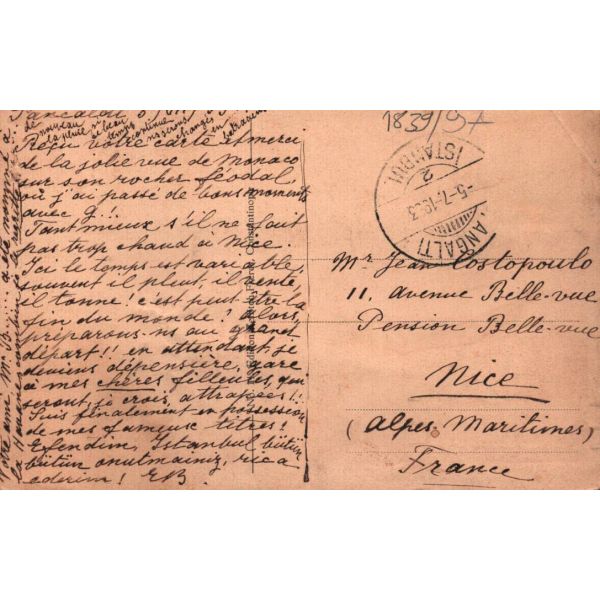 Pancaldi
de nouveau
la pluie
temps
continue
nous serons
changés
en
Reçu votre carte et merci
de la jolie vue de Monaco
sur son rocher féodal,
où j'ai passé de bons moments
avec G...
Tant mieux s'il ne fait
pas trop chaud à Nice.
Ici le temps est variable,
souvent il pleut, il vente,
il tonne! c'est peut être la
fin du monde? alors,
préparons-ns au grand
départ!! en attendant, je
deviens dépensière, gare
à mes chères filleules, qui
seront, je crois, attrapées!!
Suis finalement en possession
de mes fameux titres!
Efendim, Istanbul bütün
bütün onutmainiz, rica
ederim! EB.
Votre ami Mr B..... a été nommé à
la
1839/97
ISTANBUL
2
-5-7-1933
PANGALTI
Mr Jean Costopoulo
11, avenue Belle-vue
Pension Belle-vue
Nice
(Alpes-Maritimes)
France